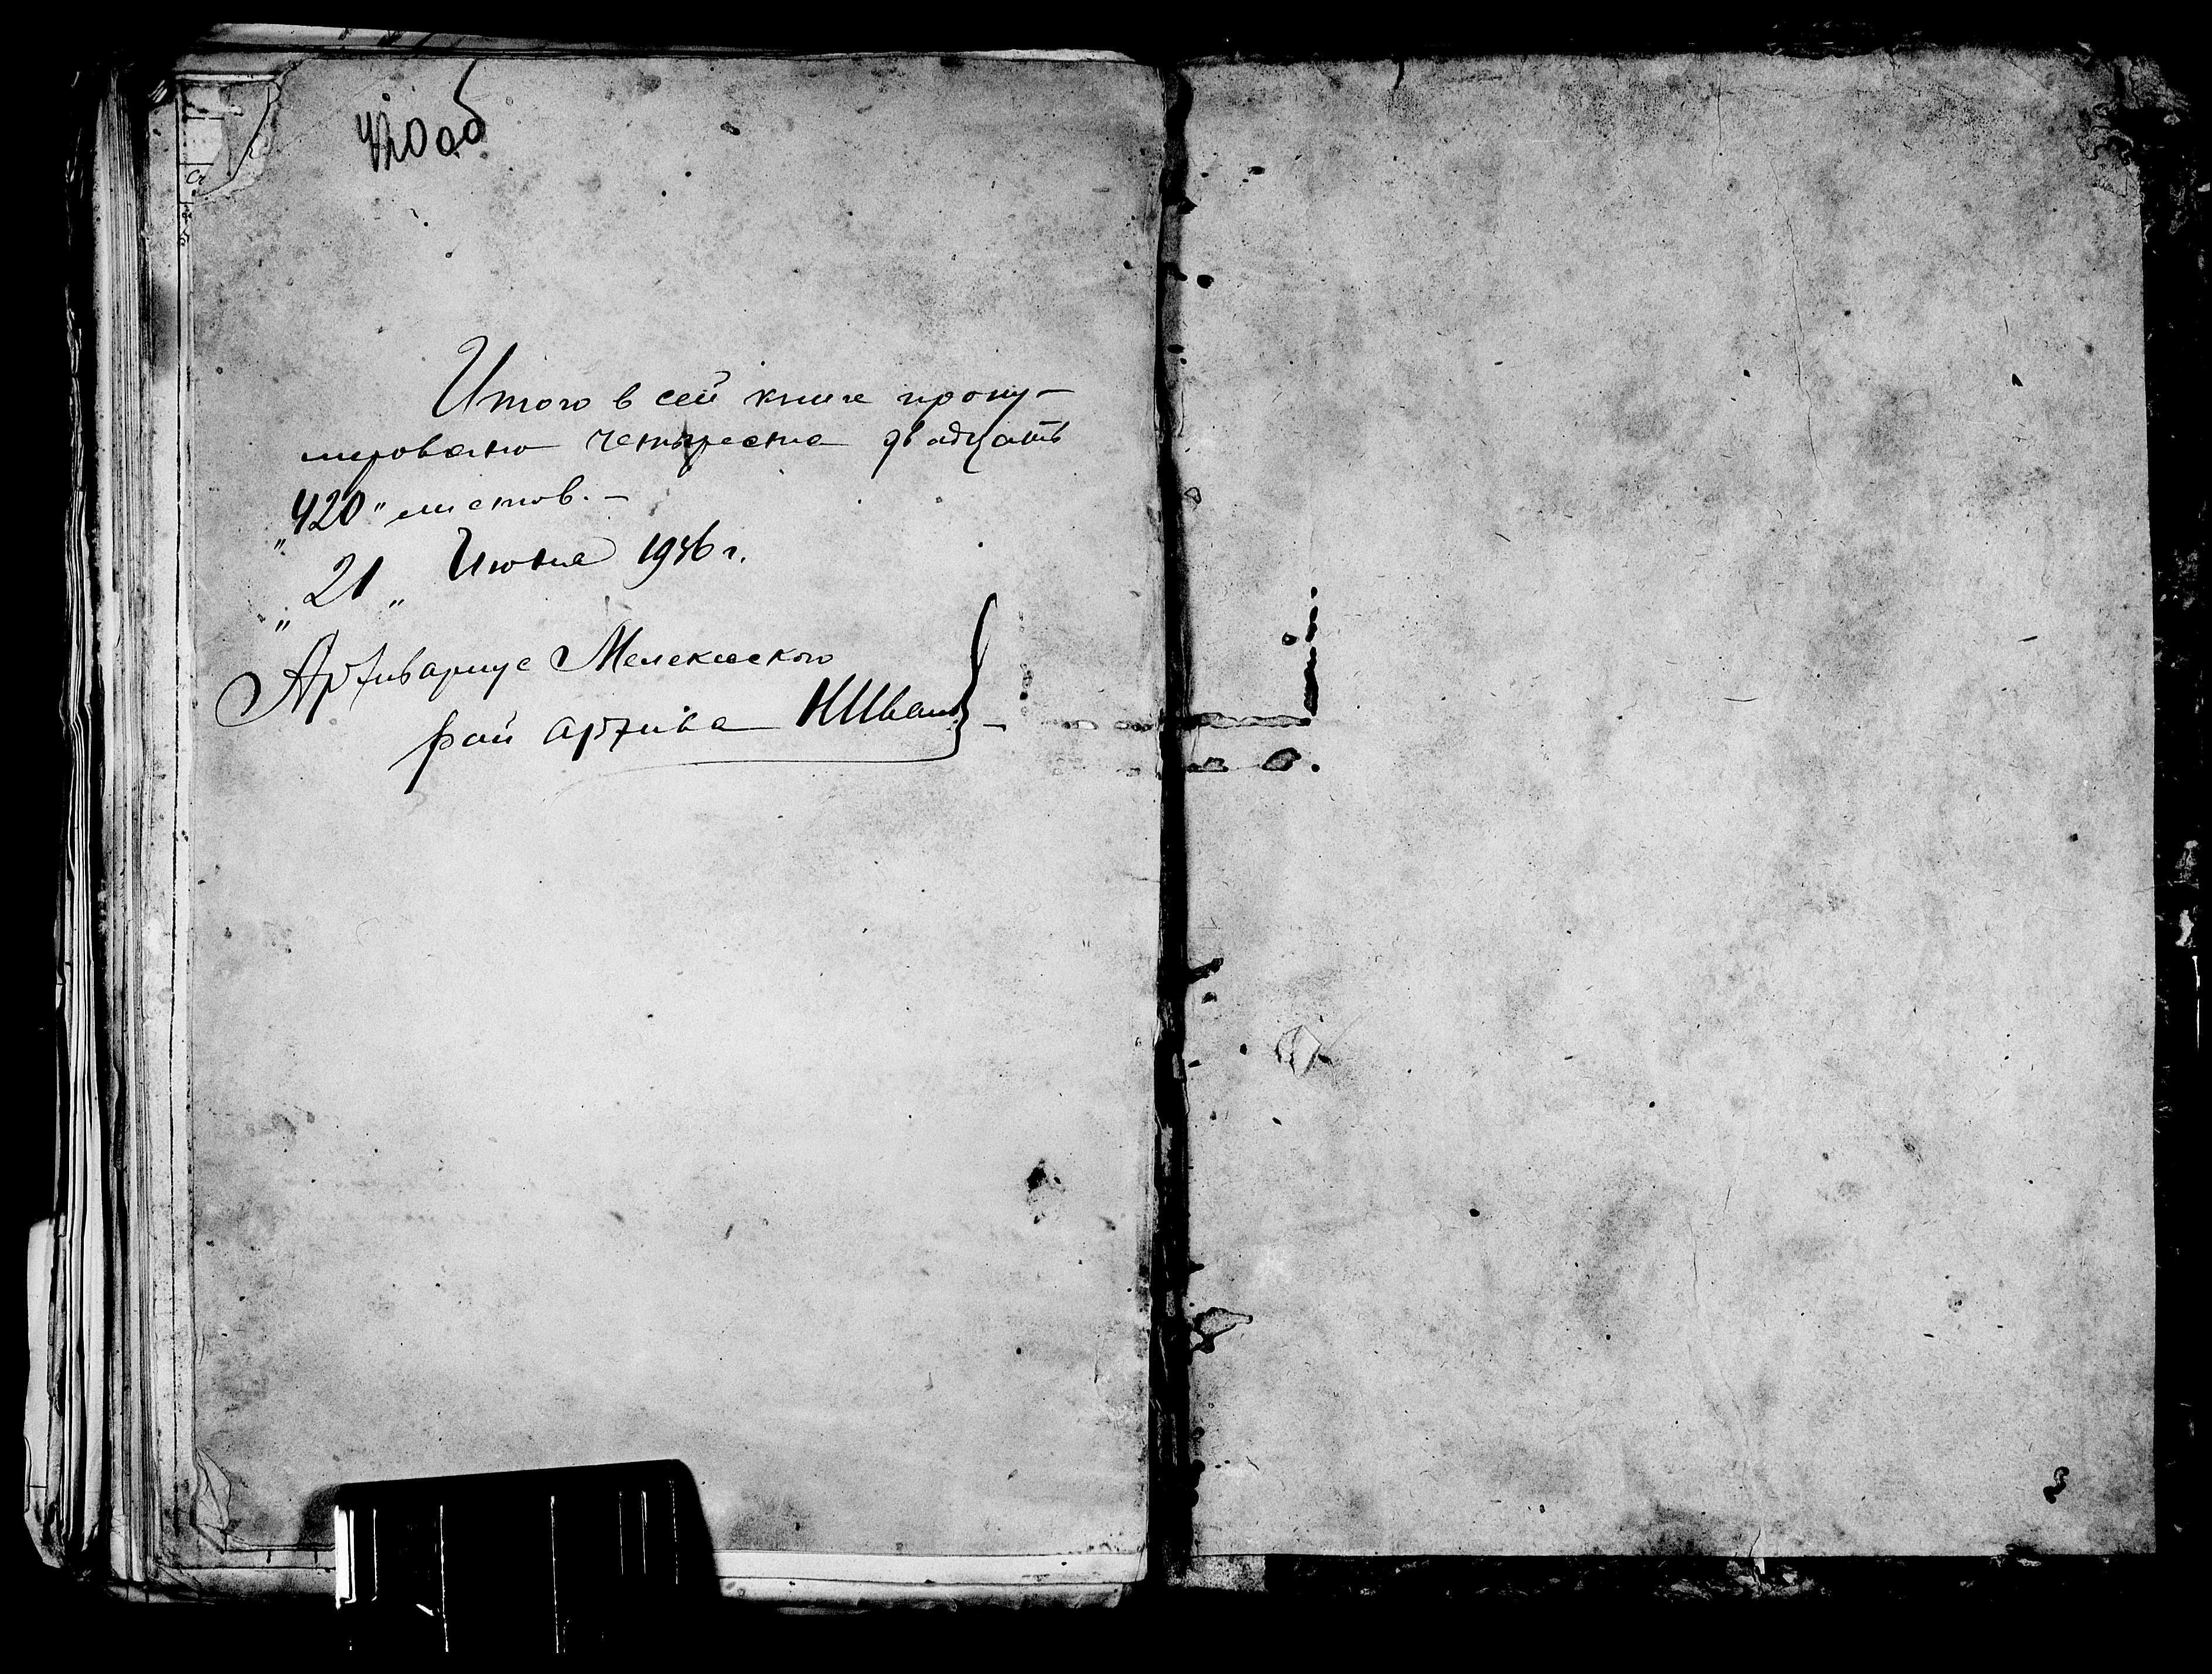 420 об
Итого в сей книге прону-
мировано четыреста двадцать
„420" листов. –
„21„ Июня 1936 г.
Архивариус Мелекесского
рай архива НИван